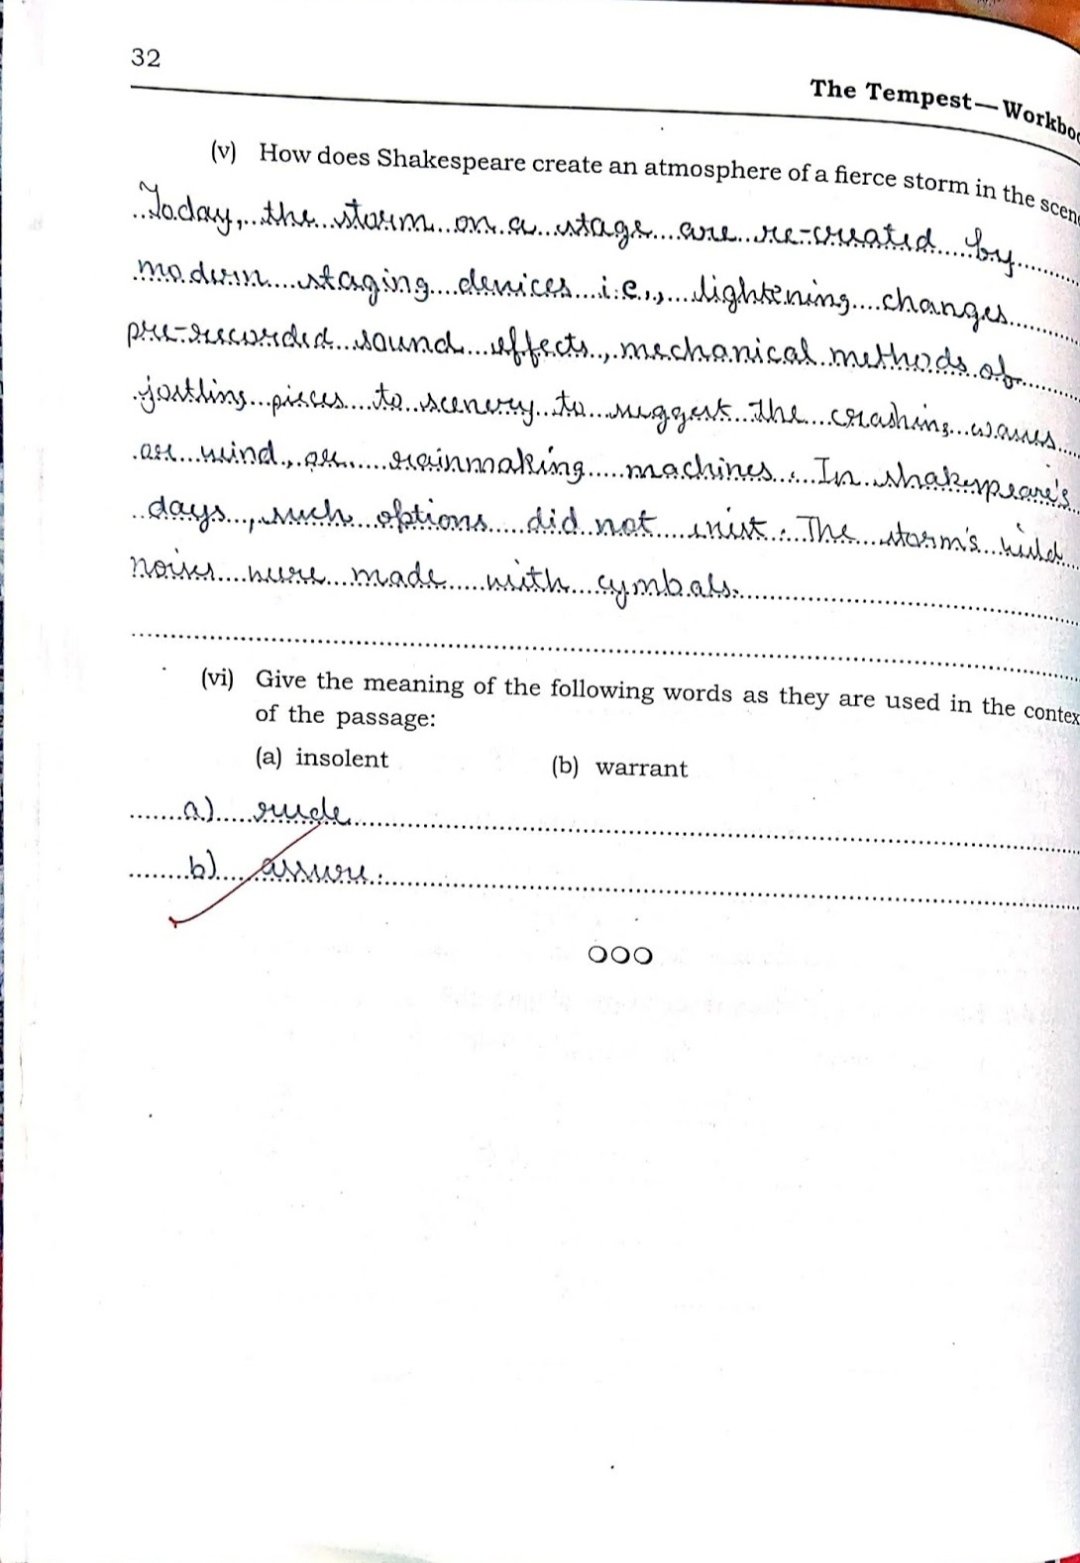 32
The Tempest—Workboo
(v) How does Shakespeare create an atmosphere of a fierce storm in the scen
Today, the storm on a stage are re-created by
modern staging devices i.e., lightening changes
pre-recorded sound effects, mechanical methods of
jostling pieces to scenery to suggest the crashing waves
or wind, or rainmaking machines. In shakespeare's
days, such options did not exist. The storm's wild
noises were made with cymbals.
(vi) Give the meaning of the following words as they are used in the contex
of the passage:
(a) insolent (b) warrant
a) rude
b) assure.